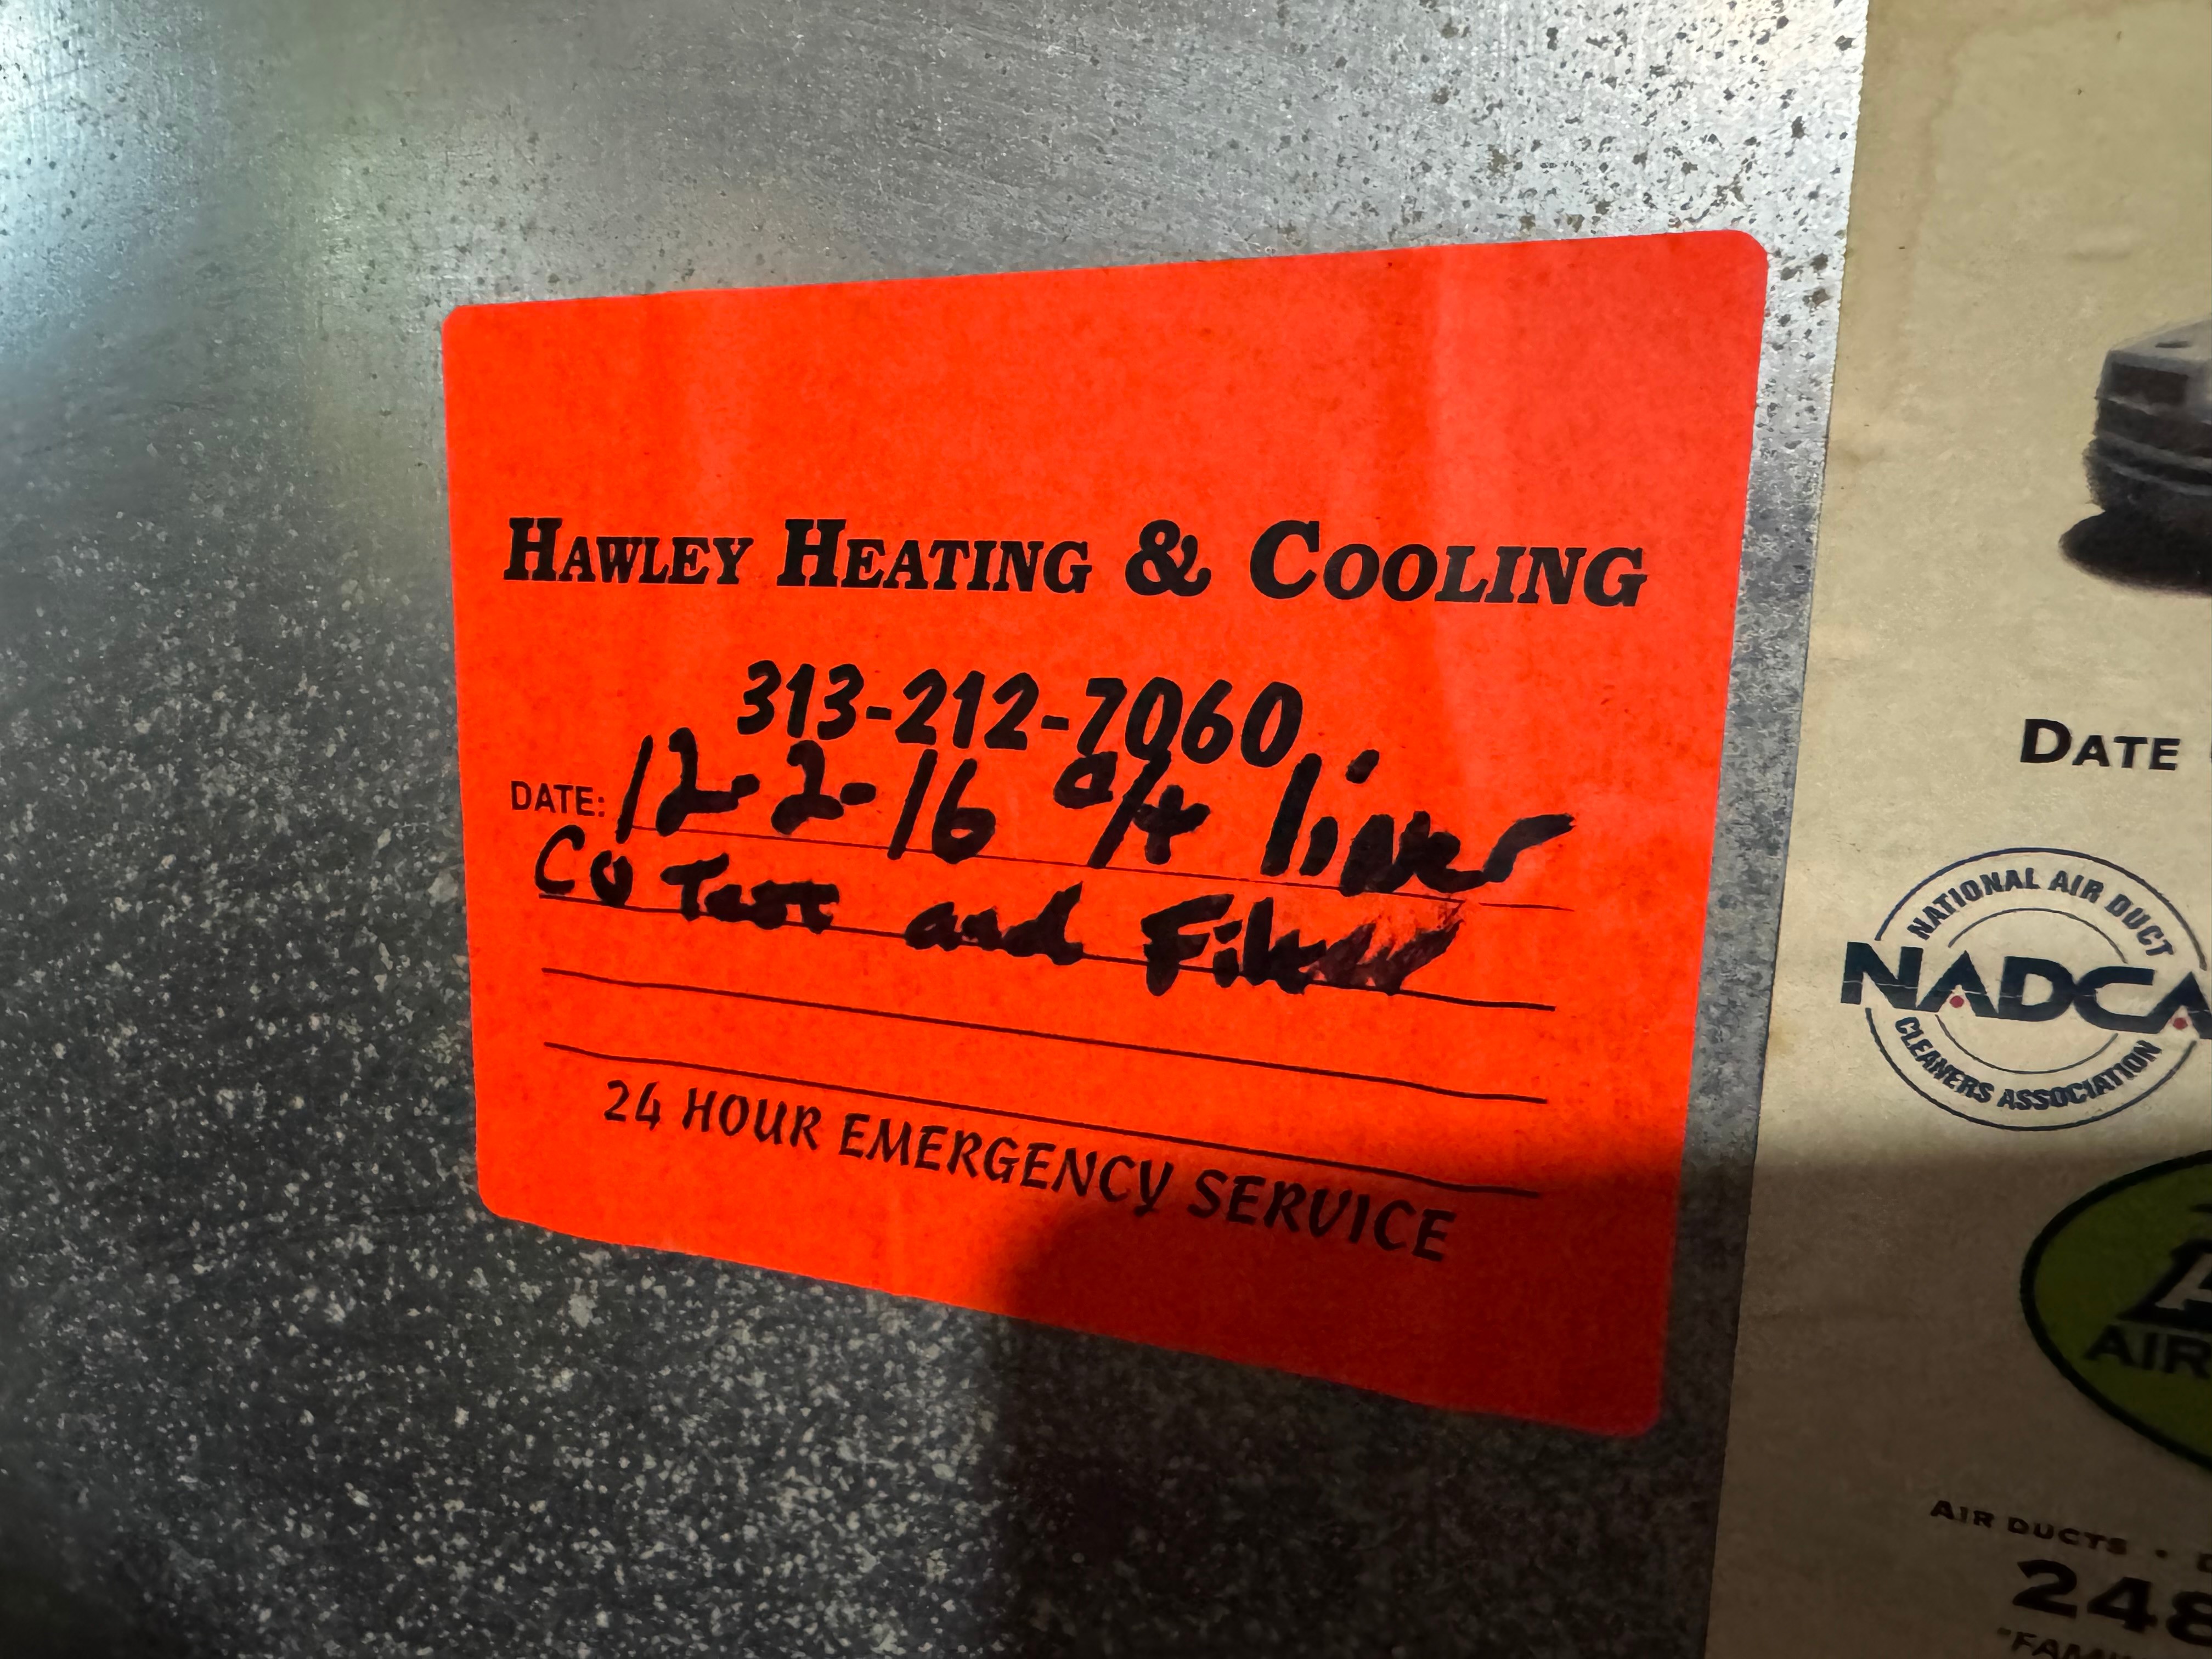 HAWLEY HEATING & COOLING
313-212-7060
DATE: 12-2-16 liner
CO Test and
24 HOUR EMERGENCY SERVICE
DATE
NATIONAL AIR DUCT
NADCA
CLEANERS ASSOCIATION
AIR
AIR DUCTS •
248
"FAMI